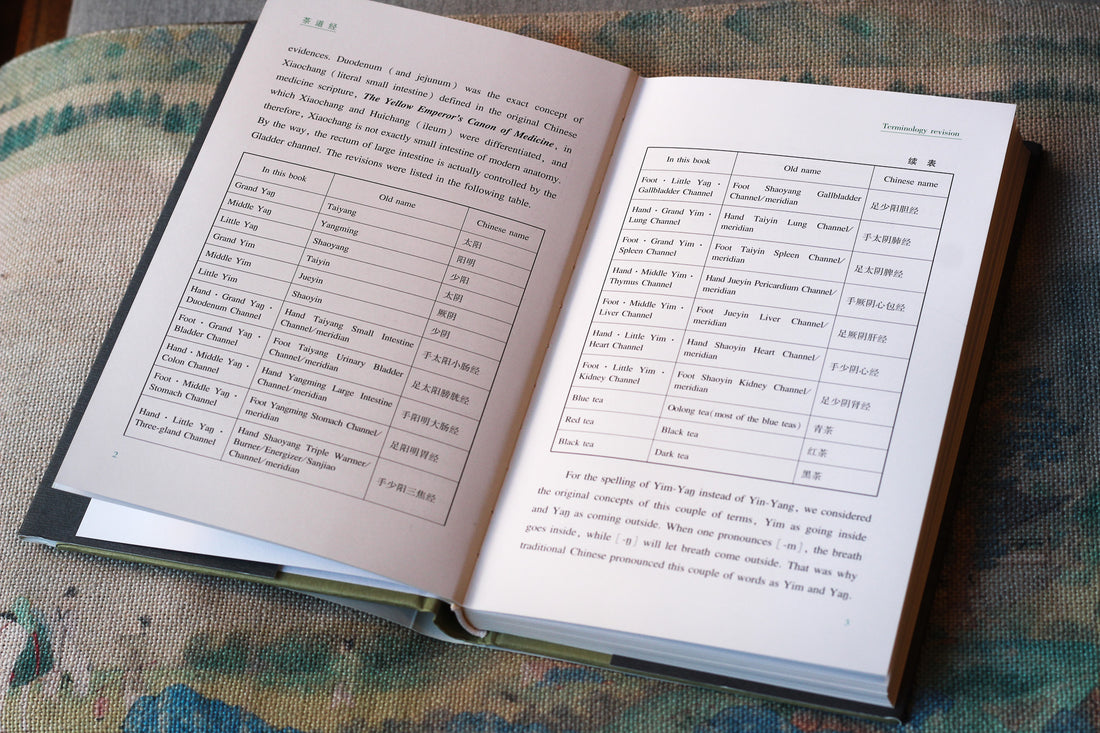 茶道经
evidences. Duodenum (and jejunum) was the exact concept of
Xiaochang (literal small intestine) defined in the original Chinese
medicine scripture, The Yellow Emperor's Canon of Medicine, in
which Xiaochang and Huichang (ileum) were differentiated, and
therefore, Xiaochang is not exactly small intestine of modern anatomy.
By the way, the rectum of large intestine is actually controlled by the
Gladder channel. The revisions were listed in the following table.
In this book Old name Chinese name
Grand Yaŋ Taiyang 太阳
Middle Yaŋ Yangming 阳明
Little Yaŋ Shaoyang 少阳
Grand Yim Taiyin 太阴
Middle Yim Jueyin 厥阴
Little Yim Shaoyin 少阴
Hand·Grand Yaŋ· Hand Taiyang Small Intestine 手太阳小肠经
Duodenum Channel Channel/meridian
Foot·Grand Yaŋ· Foot Taiyang Urinary Bladder 足太阳膀胱经
Bladder Channel Channel/meridian
Hand·Middle Yaŋ· Hand Yangming Large Intestine 手阳明大肠经
Colon Channel Channel/meridian
Foot·Middle Yaŋ· Foot Yangming Stomach Channel/ 足阳明胃经
Stomach Channel meridian
Hand·Little Yaŋ· Hand Shaoyang Triple Warmer/ 手少阳三焦经
Three-gland Channel Burner/Energizer/Sanjiao
Channel/meridian
2
Terminology revision
续表
In this book Old name Chinese name
Foot·Little Yaŋ· Foot Shaoyang Gallbladder 足少阳胆经
Gallbladder Channel Channel/meridian
Hand·Grand Yim· Hand Taiyin Lung Channel/ 手太阴肺经
Lung Channel meridian
Foot·Grand Yim· Foot Taiyin Spleen Channel/ 足太阴脾经
Spleen Channel meridian
Hand·Middle Yim· Hand Jueyin Pericardium Channel/ 手厥阴心包经
Thymus Channel meridian
Foot·Middle Yim· Foot Jueyin Liver Channel/ 足厥阴肝经
Liver Channel meridian
Hand·Little Yim· Hand Shaoyin Heart Channel/ 手少阴心经
Heart Channel meridian
Foot·Little Yim· Foot Shaoyin Kidney Channel/ 足少阴肾经
Kidney Channel meridian
Blue tea Oolong tea(most of the blue teas) 青茶
Red tea Black tea 红茶
Black tea Dark tea 黑茶
For the spelling of Yim-Yaŋ instead of Yin-Yang, we considered
the original concepts of this couple of terms, Yim as going inside
and Yaŋ as coming outside. When one pronounces [-m], the breath
goes inside, while [-ŋ] will let breath come outside. That was why
traditional Chinese pronounced this couple of words as Yim and Yaŋ.
3